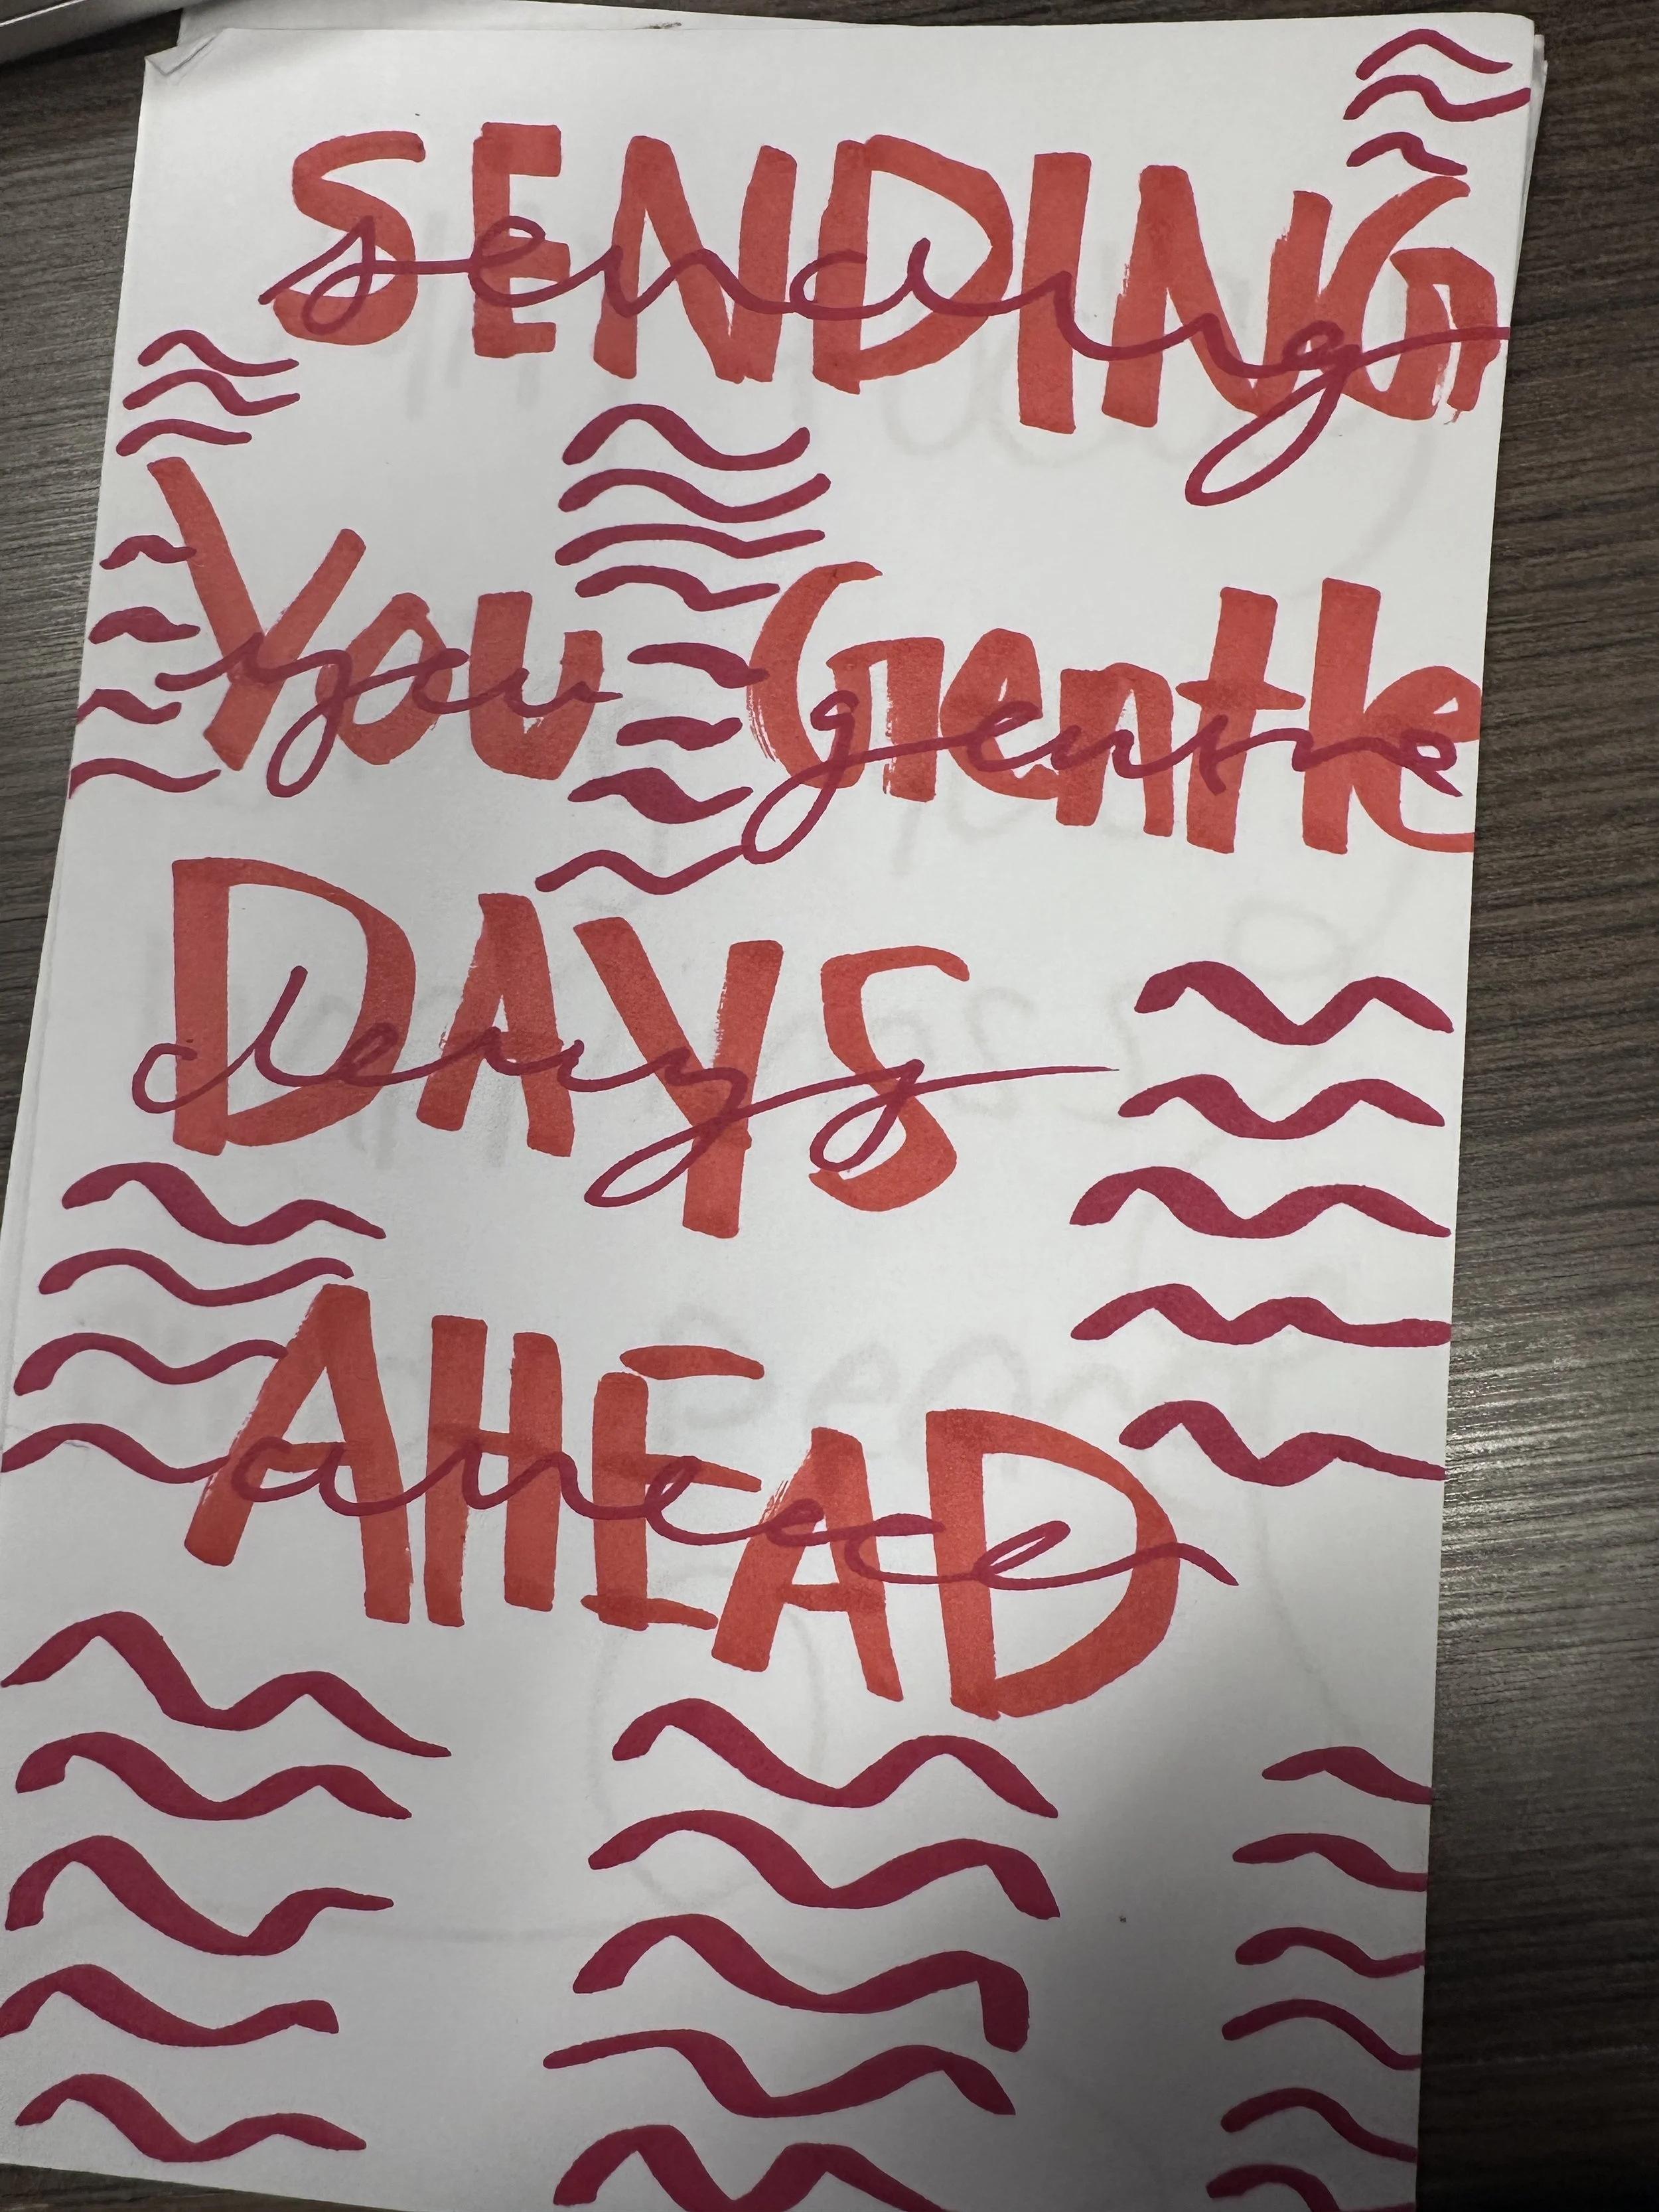 SENDING
sending
You Gentle
you gentle
DAYS
days
AHEAD
ahead